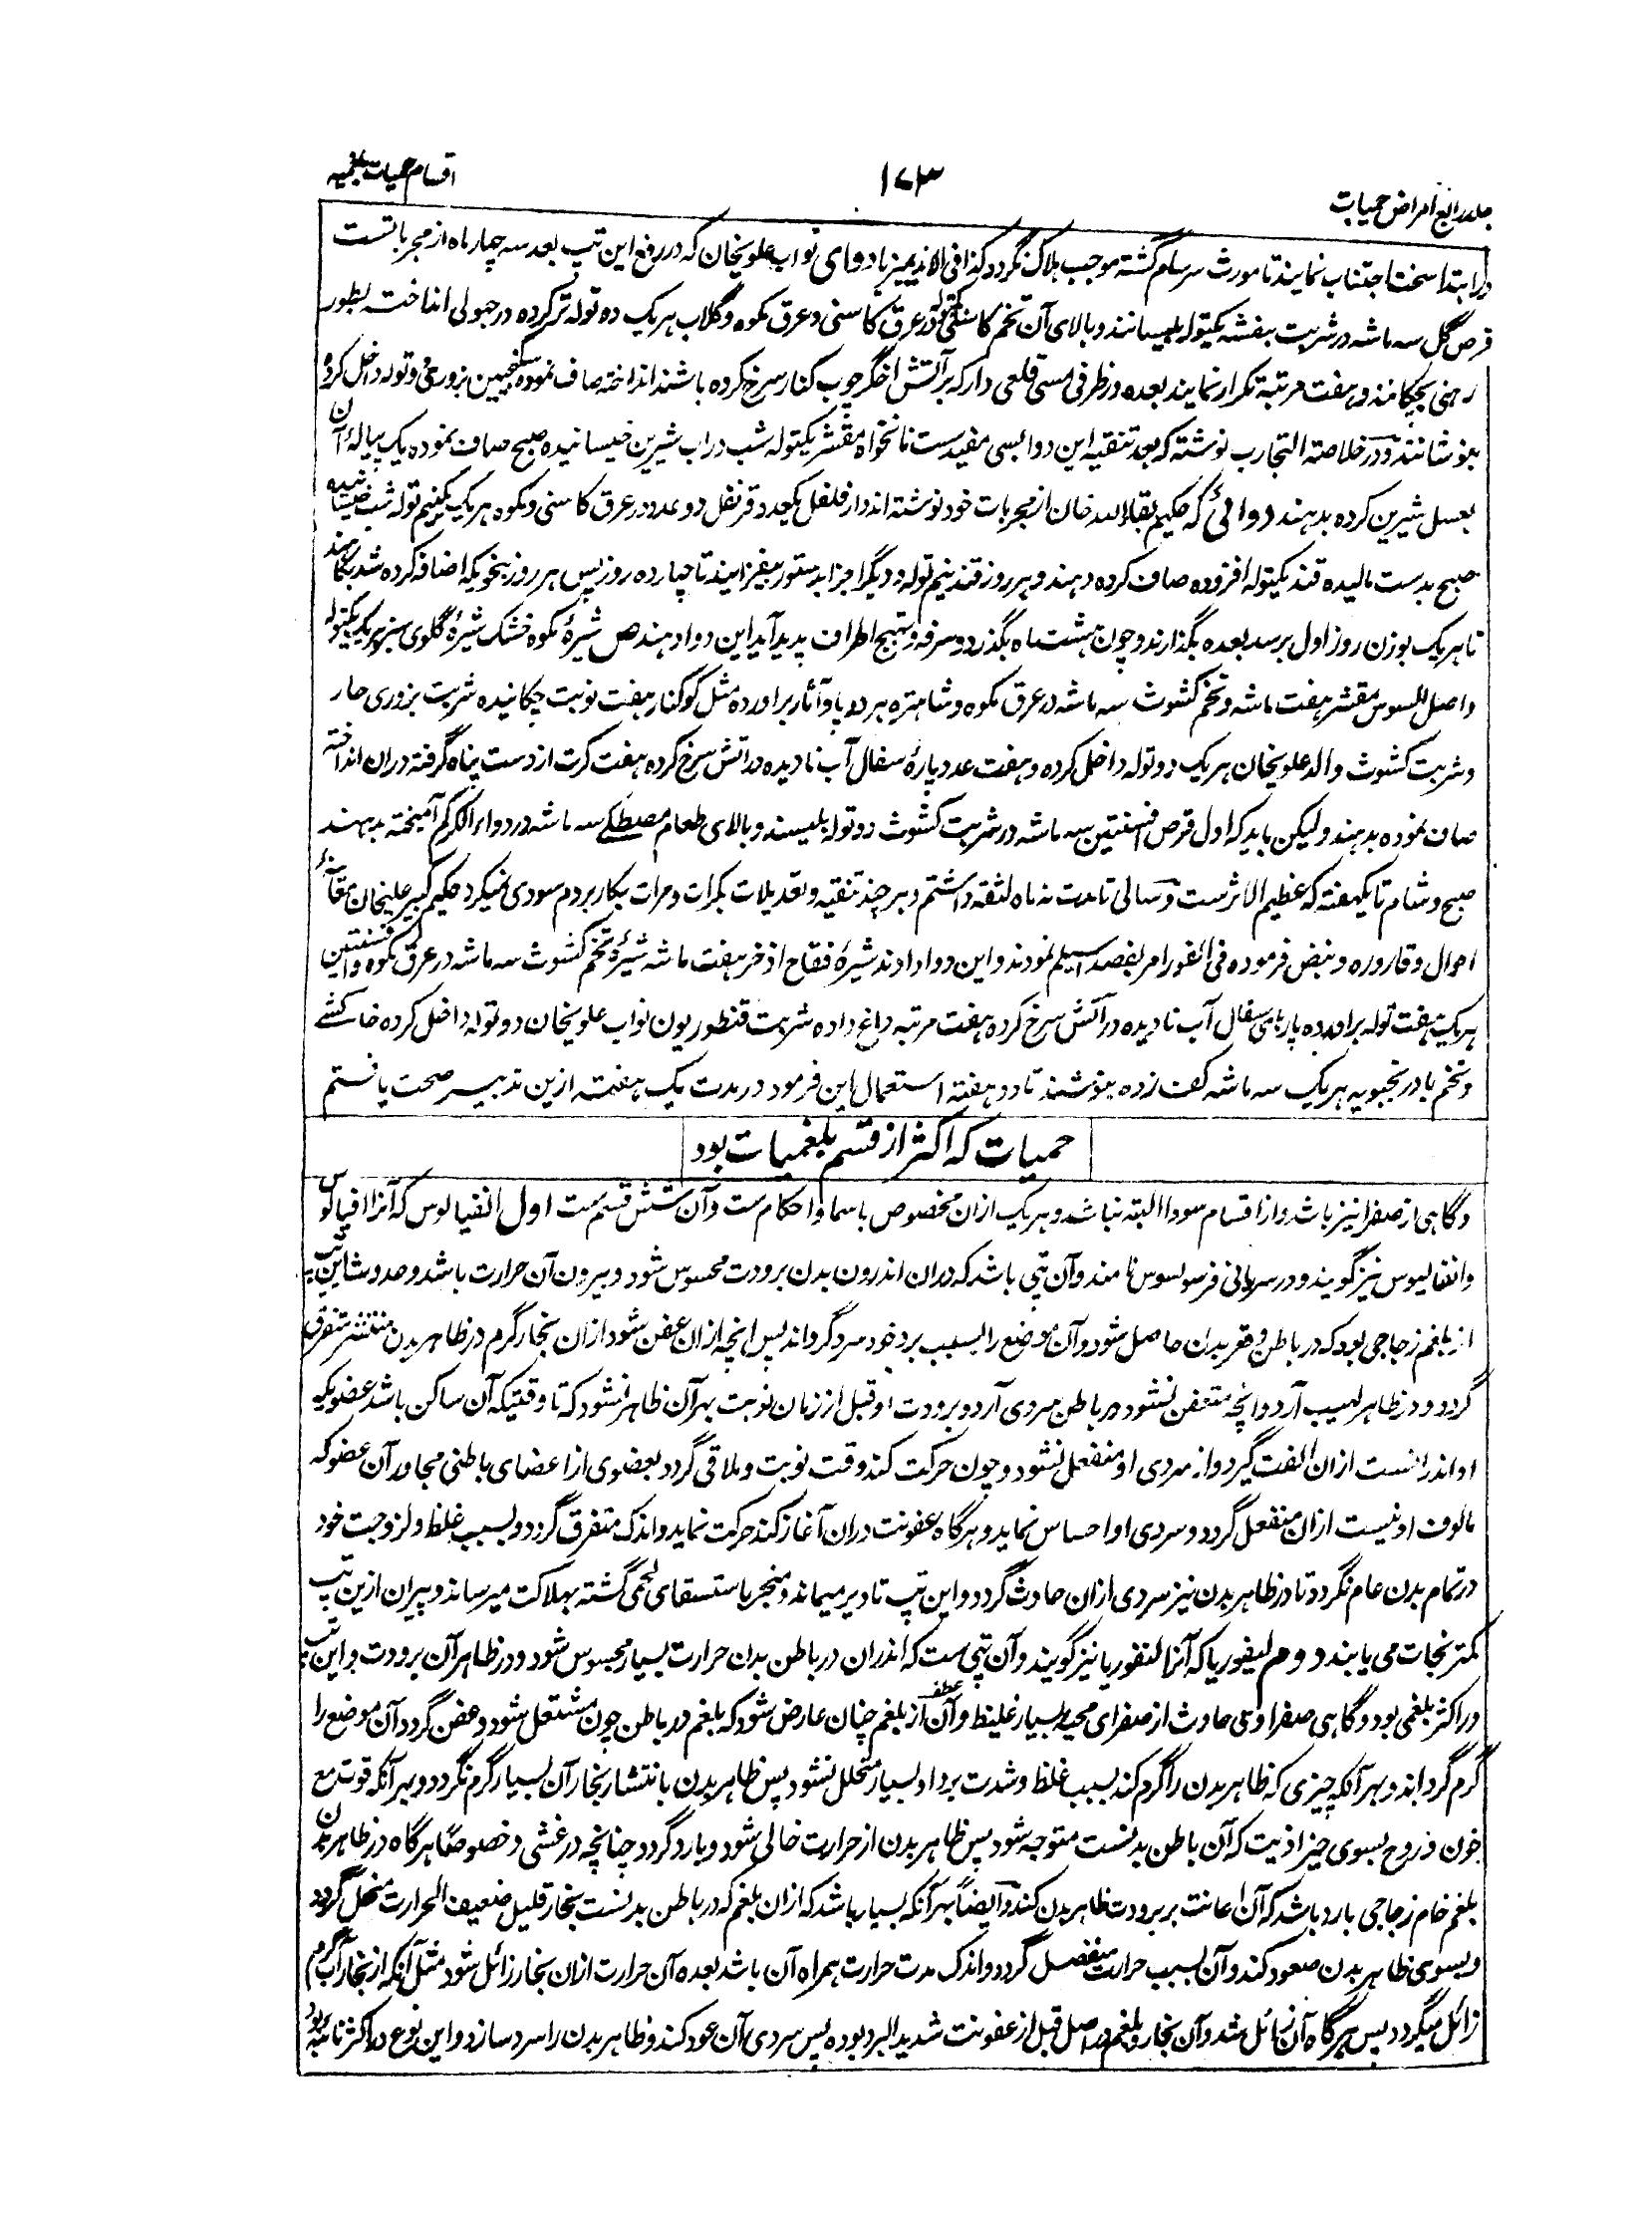 جلد رابع امراض حمیات
۱۷۳
اقسام حمیات بلغمیه
در ابتدا سخت اجتناب نمایند تا مورث سرسام گشته موجب هلاک نگردد کذا فی الا بادوای نواب علویخان که در رفع این تپ بعد سه چهار ماه از مجرباتست
قرص گل سه ماشه در شربت بنفشه یکتوله بلیسانند و بالای آن تخم کاسنی یکتوله در عرق کاسنی و عرق مکوه و گلاب هر یک ده توله تر کرده در جهولی انداخته بطور
رینی بچکانند و هفت مرتبه تکرار نمایند بعده در ظرفی مسی قلعی دار که بر آتش اخگر چوب کنار سرخ کرده باشند انداخته صاف نموده سکنجبین بزوری دو توله داخل کرده
بنوشانند و در خلاصة التجارب نوشته که بعد تنقیه این دوا بسی مفیدست نانخواه مقشر یکتوله شب در آب شیرین خیسانیده صبح صاف نموده یک پیالهٔ آن
بعسل شیرین کرده بدهند دوائی که حکیم بقاء الله خان از مجربات خود نوشته اند دار فلفل یکعدد قرنفل دو عدد در عرق کاسنی و مکوه هر یک یکنیم توله شب خیسانیده
صبح بدست مالیده قند یکتوله افزوده صاف کرده دهند و هر روز قند نیم توله و دیگر اجزا بدستور بیفزایند تا چهارده روز پس هر روز بنحویکه اضافه کرده شد بکاهند
تا هر یک بوزن روز اول برسد بعده بگذارند و چون هشت ماه بگذرد و سرفه و تهبج اطراف پدید آید این دوا دهند ص شیرهٔ مکوه خشک شیرهٔ گلوی سبز هر یک یکتوله
و اصل السوس مقشر هفت ماشه و تخم کشوث سه ماشه در عرق مکوه و شاهتره هر دو پاو آثار براورده مثل گوکنار هفت نوبت چکانیده شربت بزوری حار
و شربت کشوث والد علویخان هر یک دو توله داخل کرده و هفت عدد پارهٔ سفال آب نادیده در آتش سرخ کرده هفت کرت از دست پناه گرفته دران انداخته
صاف نموده بدهند ولیکن باید که اول قرص افسنتین سه ماشه در شربت کشوث دو توله بلیسند و بالای طعام مصطکے سه ماشه در دواء الکرکم آمیخته بدهند
صبح و شام تا یکهفته که عظیم الاثرست و سالی تا مدت نه ماه لثقه داشتم و هر چند تنقیه و تعدیلات بکرات و مرات بکار بردم سودی نمیکرد حکیم کبیر علیخان معائنهٔ
احوال و قاروره و نبض فرموده فی الفور امر بفصد اسیلم نمودند و این دوا دادند شیرهٔ فقاح اذخر هفت ماشه شیرهٔ تخم کشوث سه ماشه در عرق مکوه و افسنتین
هر یک هفت توله براورده پارهای سفال آب نادیده در آتش سرخ کرده هفت مرتبه داغ داده شربت قنطوریون نواب علویخان دو توله داخل کرده خاکشے
و تخم بادرنجبویه هر یک سه ماشه کف زده بنوشند تا دو هفته استعمال این فرمود در مدت یک هفته ازین تدبیر صحت یافتم
حمیات که اکثر از قسم بلغمیات بود
و گاهی از صفرا نیز باشد و از اقسام سودا البته نباشد و هر یک ازان مخصوص باسما و احکام ست و آن شش قسم ست اول انفیالوس که آنرا افیالوس
و انفالیوس نیز گویند و در سریانی نامند و آن تپی باشد که دران اندرون بدن برودت محسوس شود و بیرون آن حرارت باشد و حدوث این تپ
از بلغم زجاجی بود که در باطن و قعر بدن حاصل شود و آن موضع را بسبب برد خود سرد گرداند پس انچه ازان عفن شود ازان بخار گرم در ظاهر بدن منتشر متفرق
گردد و در ظاهر لهیب آرد و انچه متعفن نشود در باطن سردی آرد و برودت او قبل از زمان نوبت بهر آن ظاهر نشود که تا وقتیکه آن ساکن باشد عضویکه
او اندرانست ازان الفت گیرد و از سردی او منفعل نشود و چون حرکت کند وقت نوبت و ملاقی گردد بعضوی از اعضای باطنی مجاور آن عضو که
مالوف او نیست ازان منفعل گردد و سردی او احساس نماید و هرگاه عفونت دران آغاز کند حرکت نماید و اندک متفرق گردد و بسبب غلظ و لزوجت خود
در تمام بدن عام نگردد تا در ظاهر بدن نیز سردی ازان حادث گردد و این تپ تا دیر میماند و منجر باستسقای لحمی گشته بهلاکت میرساند و پیران ازین تپ
کمتر نجات می یابند دوم لیفوریا که آنرا لنفوریا نیز گویند و آن تپی ست که اندران در باطن بدن حرارت بسیار محسوس شود و در ظاهر آن برودت و این تپ
در اکثر بلغمی بود و گاهی صفراوی حادث از صفرای محیه بسیار غلیظ و آن عطف از بلغم چنان عارض شود که بلغم در باطن چون مشتعل شود و عفن گردد آن موضع را
گرم گرداند و بهر آنکه چیزی که ظاهر بدن را گرم کند بسبب غلظ و شدت برد او بسیار متحلل نشود پس ظاهر بدن بانتشار بخار آن بسیار گرم نگردد و بهر آنکه قوت مع
خون و روح بسوی حیز اذیت که آن باطن بدنست متوجه شود پس ظاهر بدن از حرارت خالی شود و بارد گردد چنانچه در غشی و خصوصًا هرگاه در ظاهر بدن
بلغم خام زجاجی بارد باشد که آن اعانت بر برودت ظاهر بدن کند و ایضاً بهر آنکه بسیار باشد که ازان بلغم که در باطن بدنست بخار قلیل ضعیف الحرارت منحل گردد
و بسوی ظاهر بدن صعود کند و آن بسبب حرارت منفصل گردد و اندک مدت حرارت همراه آن باشد بعده آن حرارت ازان بخار زائل شود مثل آنکه از بخار آب گرم
زائل میگردد پس هرگاه آن زائل شد و آن بخار و بلغم در اصل قبل از عفونت شدید البرد بوده پس سردی آن عود کند و ظاهر بدن را سرد سازد و این نوع در اکثر نائبه بود